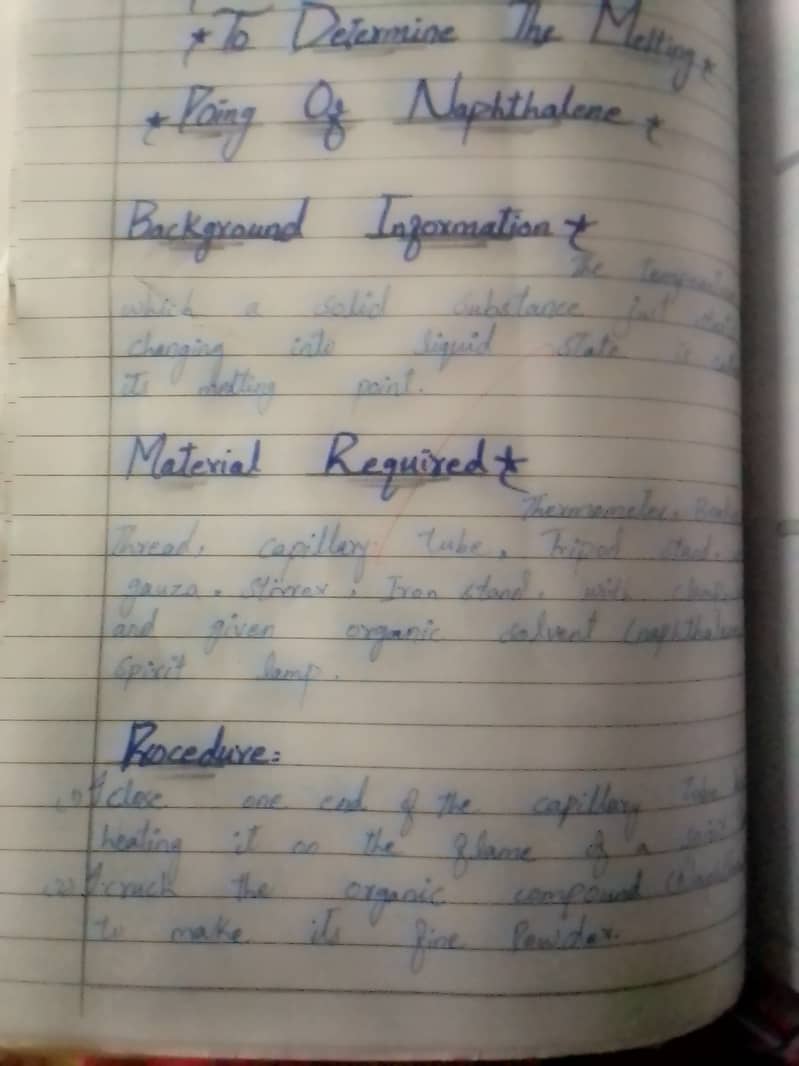 *To Determine The Melting*
*Poing Of Naphthalene*
Background Information*
The
which a solid substance just
changing into liquid state is
its melting point.
Material Required*
Thermometer,
Thread, capillary tube, Tripod stand,
gauza, Stirrer, Iron stand, with
and given organic solvent (naphthalene
Spirit lamp.
Procedure:
close one end of the capillary tube
heating it on the flame of a
the organic compound
to make its fine Powder.